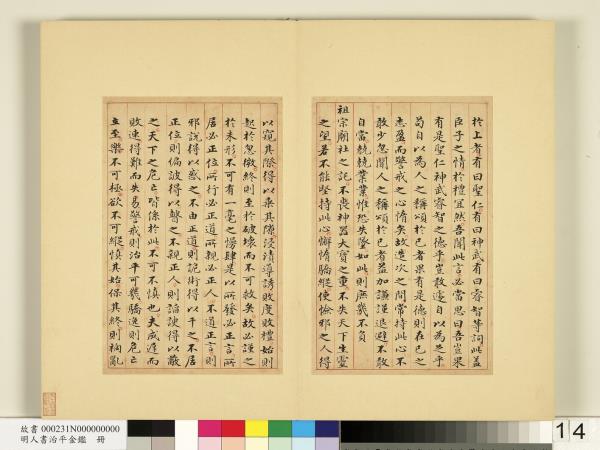 於上者有曰聖仁有曰神武有曰睿智等詞此蓋
臣子之情於禮宜然吾聞此言必當思曰吾豈果
有是聖仁神武睿智之德乎豈敢遽自以為足乎
苟自以為人之稱頌於己者果有是德則在己之
志盈而警戒之心惰矣故造次之間常持此心不
敢少忽聞人之稱頌於己者益加謙謹退避不敢
自當兢兢業業惟恐失墜如此則庶幾不負
祖宗廟社之託不喪神器大寶之重不失天下生靈
之望若不能堅持此心懈惰驕縱使憸邪之人得
以窺其際得以乘其隙浸漬導誘敗度敗禮始則
起於忽微終則至於破壞而不可救矣故必謹之
於未形不可有一毫之慢肆是以所發必正言所
居必正位所行必正道所親必正人不道正言則
邪說得以惑之不由正道則詭術得以干之不居
正位則偏陂得以
之不親正人則諂諛得以蔽
之天下之危亡皆係於此不可不慎也夫成遲而
敗速得難而失易警戒則治平可幾驕逸則危亡
立至樂不可極欲不可縱慎其始保其終則禍亂
故書 000231N000000000
明人書治平金鑑 冊
14